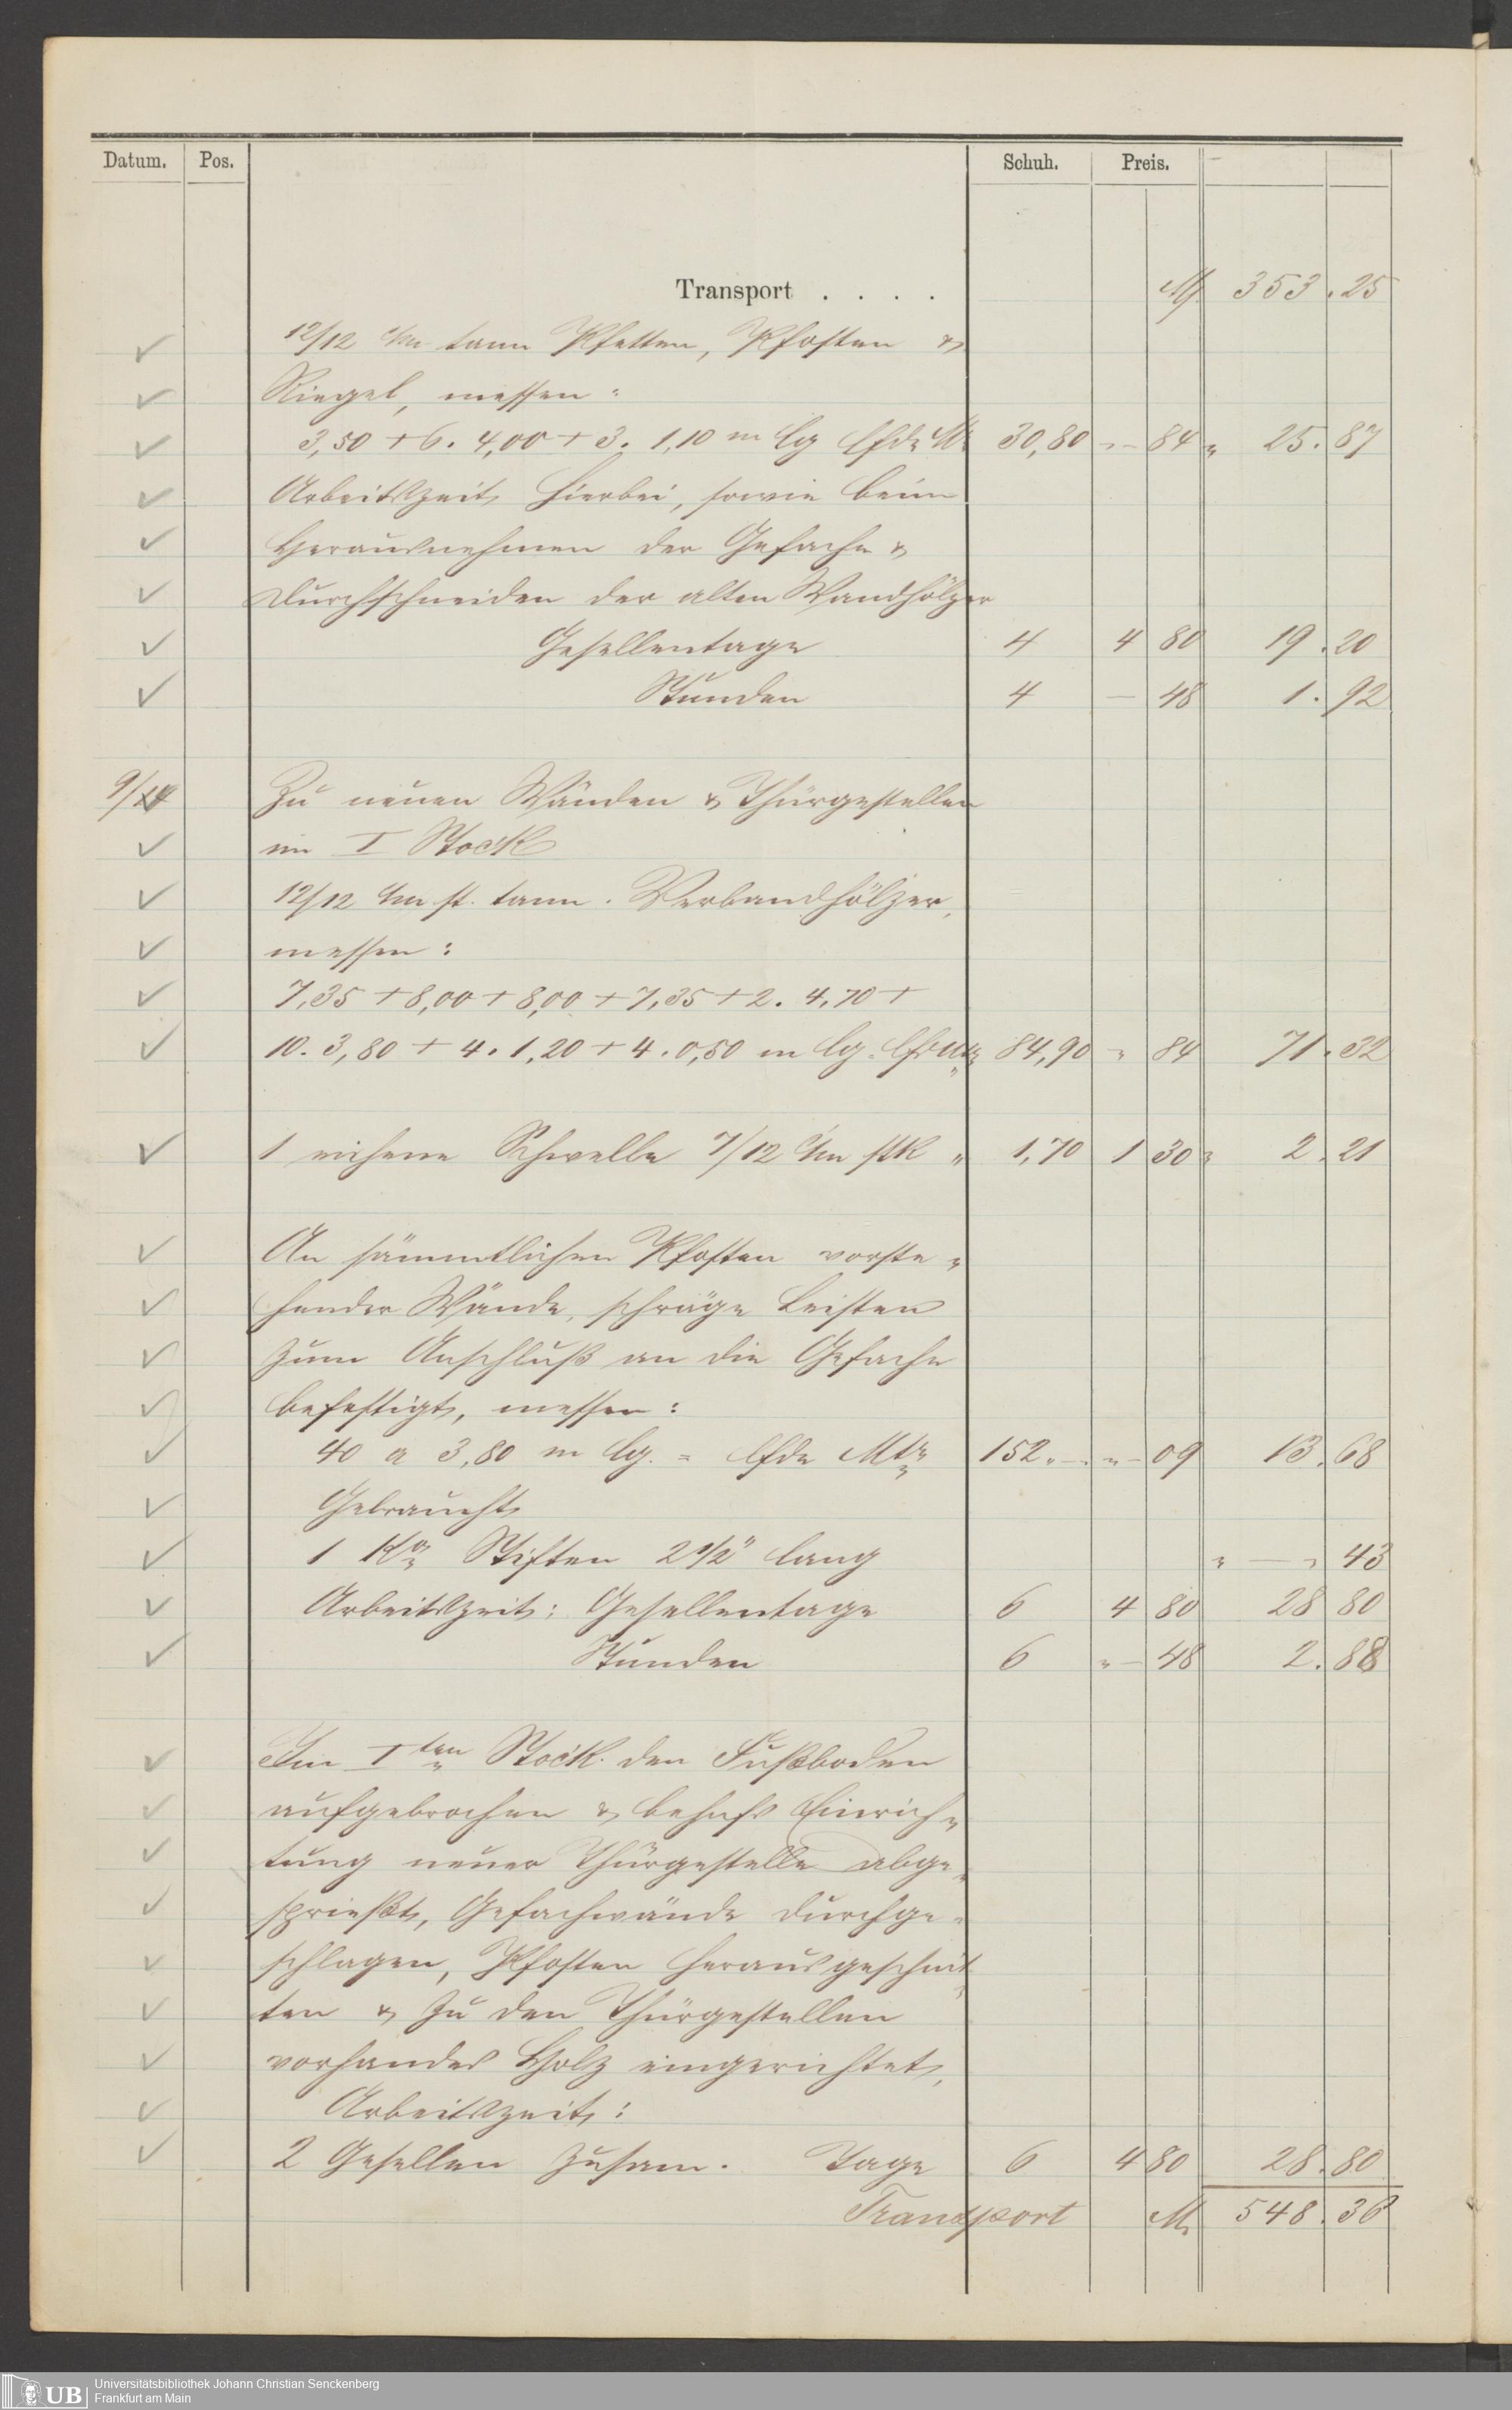 Datum. Pos. Schuh. Preis.
Transport . . . . M 353. 25
12/12 c/m tann Pfetten, Pfosten &
Riegel, messen:
3,50 + 6. 4,00 + 3. 1,10 m lg lfde M 30,80 – 84 " 25. 87
Arbeitszeit hierbei, sowie beim
Herausnehmen der Gefache &
Durchschneiden der alten Wandhölzer
Gesellentage 4 4 80 19. 20
Stunden 4 – 48 1. 92
9/
Zu neuen Wänden & Thürgestellen
im I Stock
12/12 c/m st. tann. Verbandhölzer,
messen:
7,35 + 8,00 + 8,00 + 7,35 + 2. 4,70 +
10. 3,80 + 4. 1,20 + 4. 0,50 m lg. lfd Mtr 84,90 " 84 71. 32
1 eichene Schwelle 7/12 c/m stk " 1,70 1 30 " 2. 21
An sämmtlichen Pfosten vorste-
hender Wände, schräge Leisten
zum Anschluß an die Gefache
befestigt, messen:
40 a 3,80 m lg. = lfde Mtr 152. – " – 09 13. 68
Gebraucht
1 Ko Stiften 2 1/2" lang " – " 43
Arbeitszeit: Gesellentage 6 4 80 28 80
Stunden 6 " – 48 2. 88
Im I ten Stock den Fußboden
aufgebrochen & behufs Einrich-
tung neuer Thürgestelle abge-
sprießt, Gefachwände durchge-
schlagen, Pfosten herausgeschnit-
ten & zu den Thürgestellen
vorhandes Holz eingerichtet,
Arbeitszeit:
2 Gesellen zusam. Tage 6 4 80 28. 80
Transport M 548. 36
UB Universitätsbibliothek Johann Christian Senckenberg
Frankfurt am Main